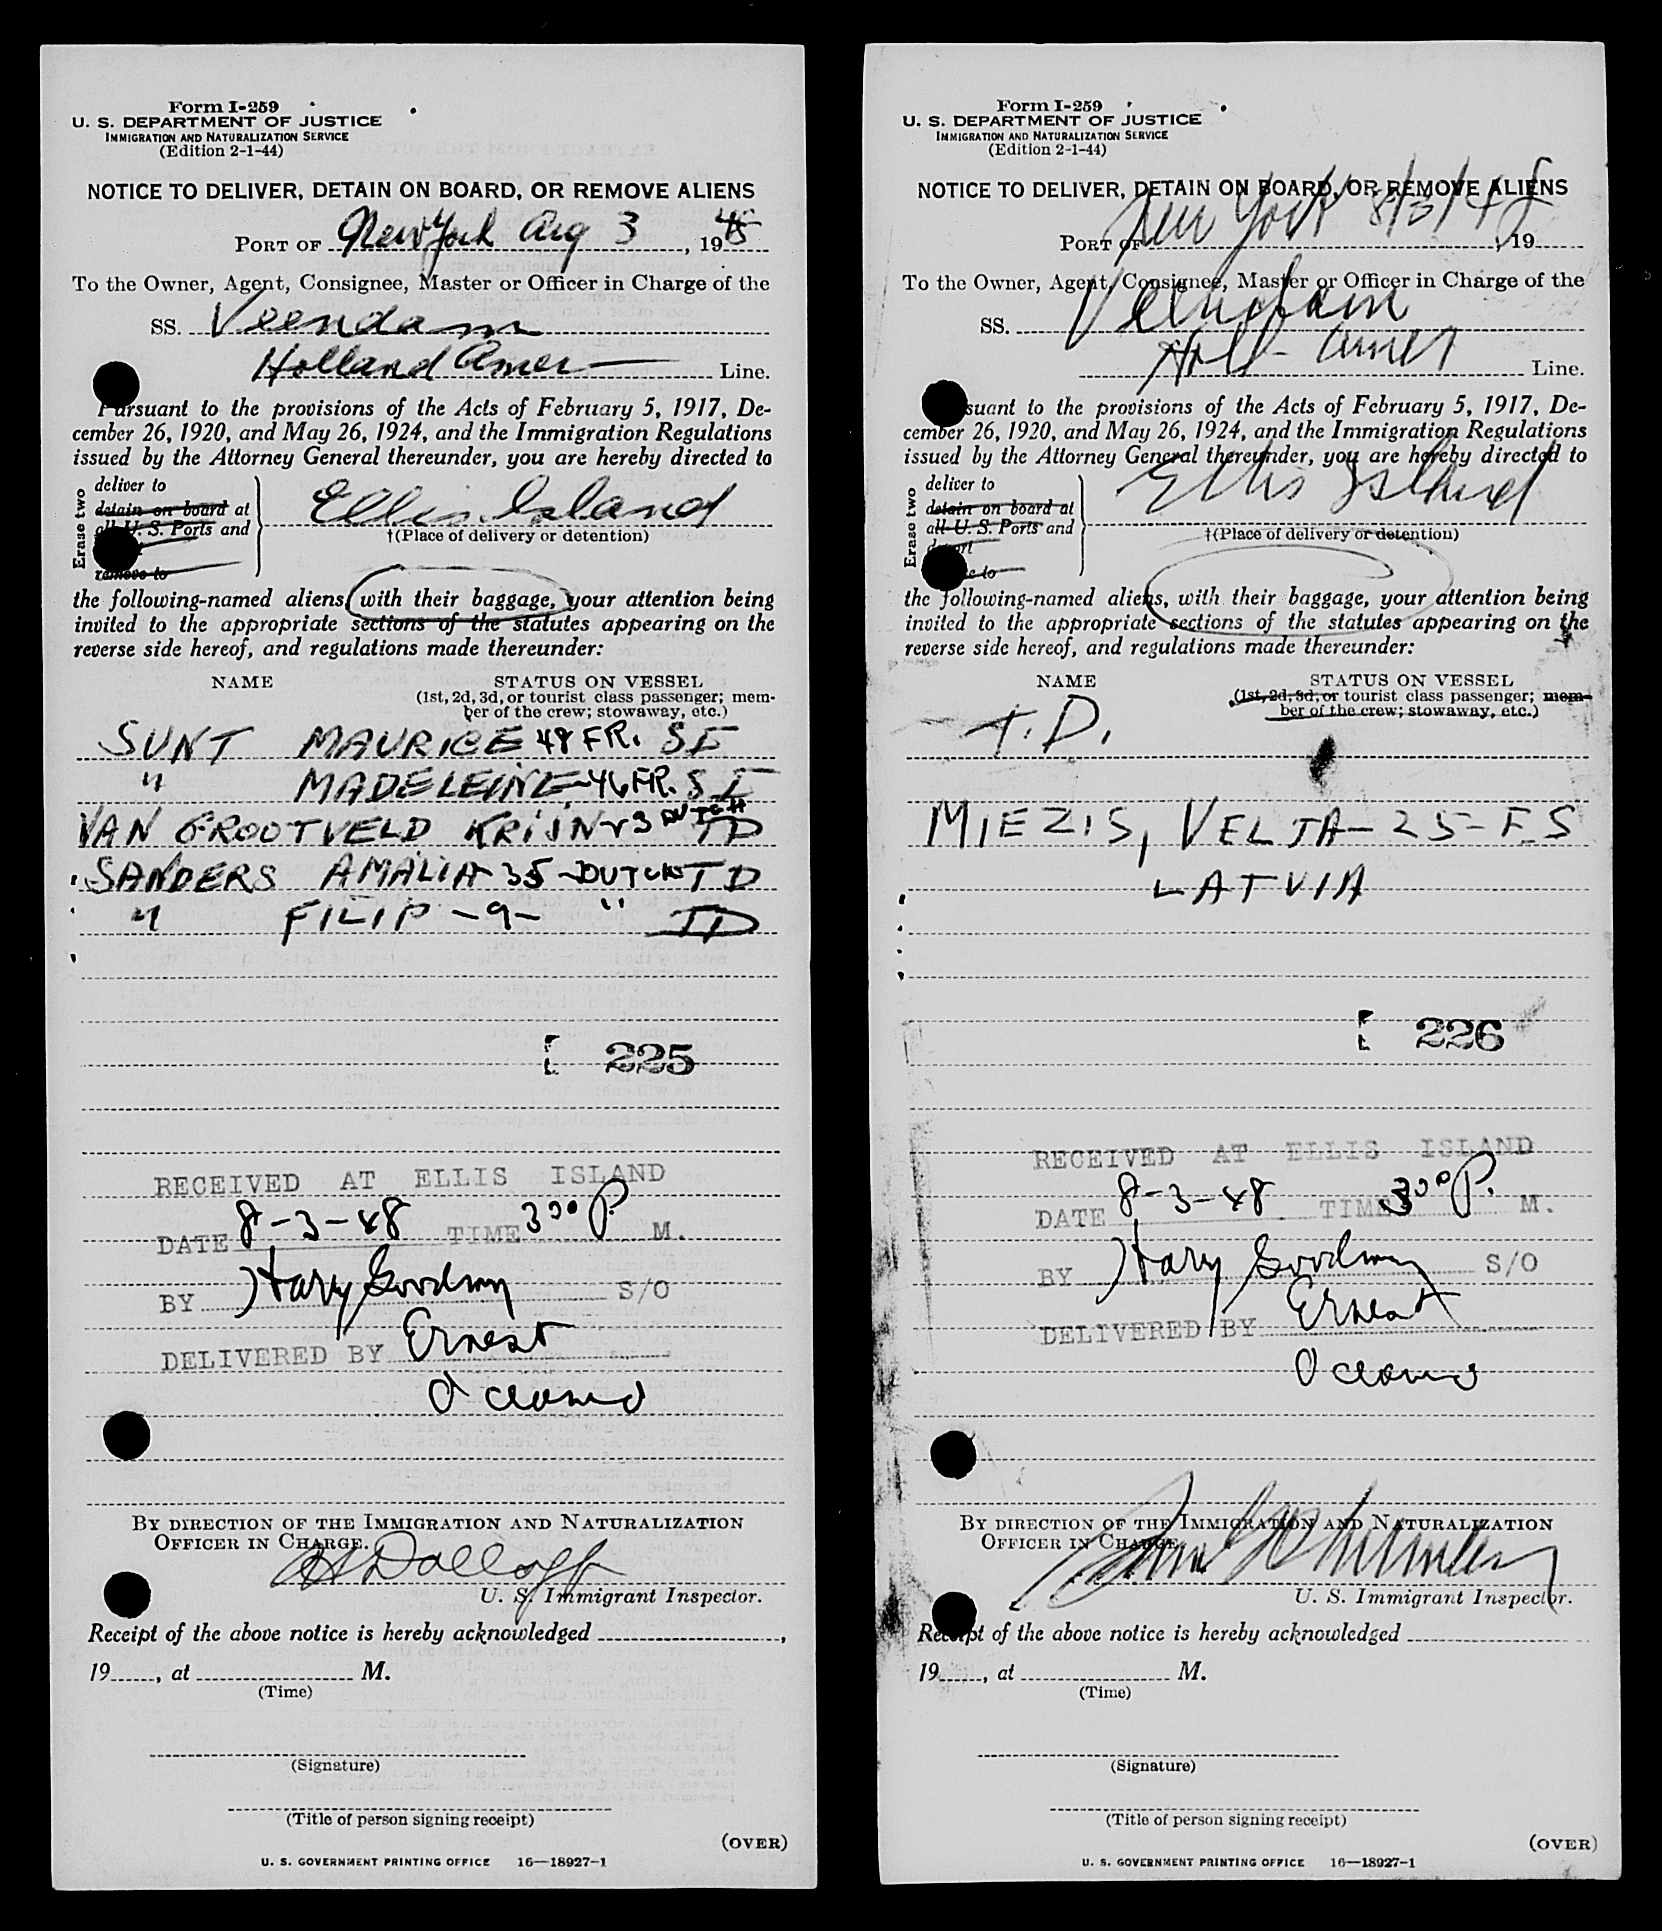 Form I-259
U. S. DEPARTMENT OF JUSTICE
IMMIGRATION AND NATURALIZATION SERVICE
(Edition 2-1-44)
NOTICE TO DELIVER, DETAIN ON BOARD, OR REMOVE ALIENS
PORT OF New York Aug 3, 1948
To the Owner, Agent, Consignee, Master or Officer in Charge of the
SS. Veendam
Holland Amer Line.
Pursuant to the provisions of the Acts of February 5, 1917, De-
cember 26, 1920, and May 26, 1924, and the Immigration Regulations
issued by the Attorney General thereunder, you are hereby directed to
Erase two
deliver to
detain on board at
all U. S. Ports and
remove to
Ellis Island
†(Place of delivery or detention)
the following-named aliens, with their baggage, your attention being
invited to the appropriate sections of the statutes appearing on the
reverse side hereof, and regulations made thereunder:
NAME STATUS ON VESSEL
(1st, 2d, 3d, or tourist class passenger; mem-
ber of the crew; stowaway, etc.)
SUNT MAURICE 48 FR. SI
" MADELEINE-46 FR. SI
VAN GROOTVELD KRIJN-23 DUTCH TD
SANDERS AMALIA-35-DUTCH TD
" FILIP-9- " TD
225
RECEIVED AT ELLIS ISLAND
DATE 8-3-48 TIME 3 00 P. M.
BY Harry Goodman S/O
DELIVERED BY Ernest
O
BY DIRECTION OF THE IMMIGRATION AND NATURALIZATION
OFFICER IN CHARGE.
U. S. Immigrant Inspector.
Receipt of the above notice is hereby acknowledged ,
19 , at M.
(Time)
(Signature)
(Title of person signing receipt)
(OVER)
U. S. GOVERNMENT PRINTING OFFICE 16—18927-1
Form I-259
U. S. DEPARTMENT OF JUSTICE
IMMIGRATION AND NATURALIZATION SERVICE
(Edition 2-1-44)
NOTICE TO DELIVER, DETAIN ON BOARD, OR REMOVE ALIENS
PORT OF New York 8/3/48, 19
To the Owner, Agent, Consignee, Master or Officer in Charge of the
SS. Veendam
Holl-Amer Line.
suant to the provisions of the Acts of February 5, 1917, De-
cember 26, 1920, and May 26, 1924, and the Immigration Regulations
issued by the Attorney General thereunder, you are hereby directed to
Erase two
deliver to
detain on board at
all U. S. Ports and
Ellis Island
†(Place of delivery or detention)
the following-named aliens, with their baggage, your attention being
invited to the appropriate sections of the statutes appearing on the
reverse side hereof, and regulations made thereunder:
NAME STATUS ON VESSEL
(1st, 2d, 3d, or tourist class passenger; mem-
ber of the crew; stowaway, etc.)
T.D.
MIEZIS, VELTA-25-F.S
LATVIA
226
RECEIVED AT ELLIS ISLAND
DATE 8-3-48 TIME 3 00 P. M.
BY Harry Goodman S/O
DELIVERED BY Ernest
O
BY DIRECTION OF THE IMMIGRATION AND NATURALIZATION
OFFICER IN CHARGE.
U. S. Immigrant Inspector.
Receipt of the above notice is hereby acknowledged
19 , at M.
(Time)
(Signature)
(Title of person signing receipt)
(OVER)
U. S. GOVERNMENT PRINTING OFFICE 16—18927-1